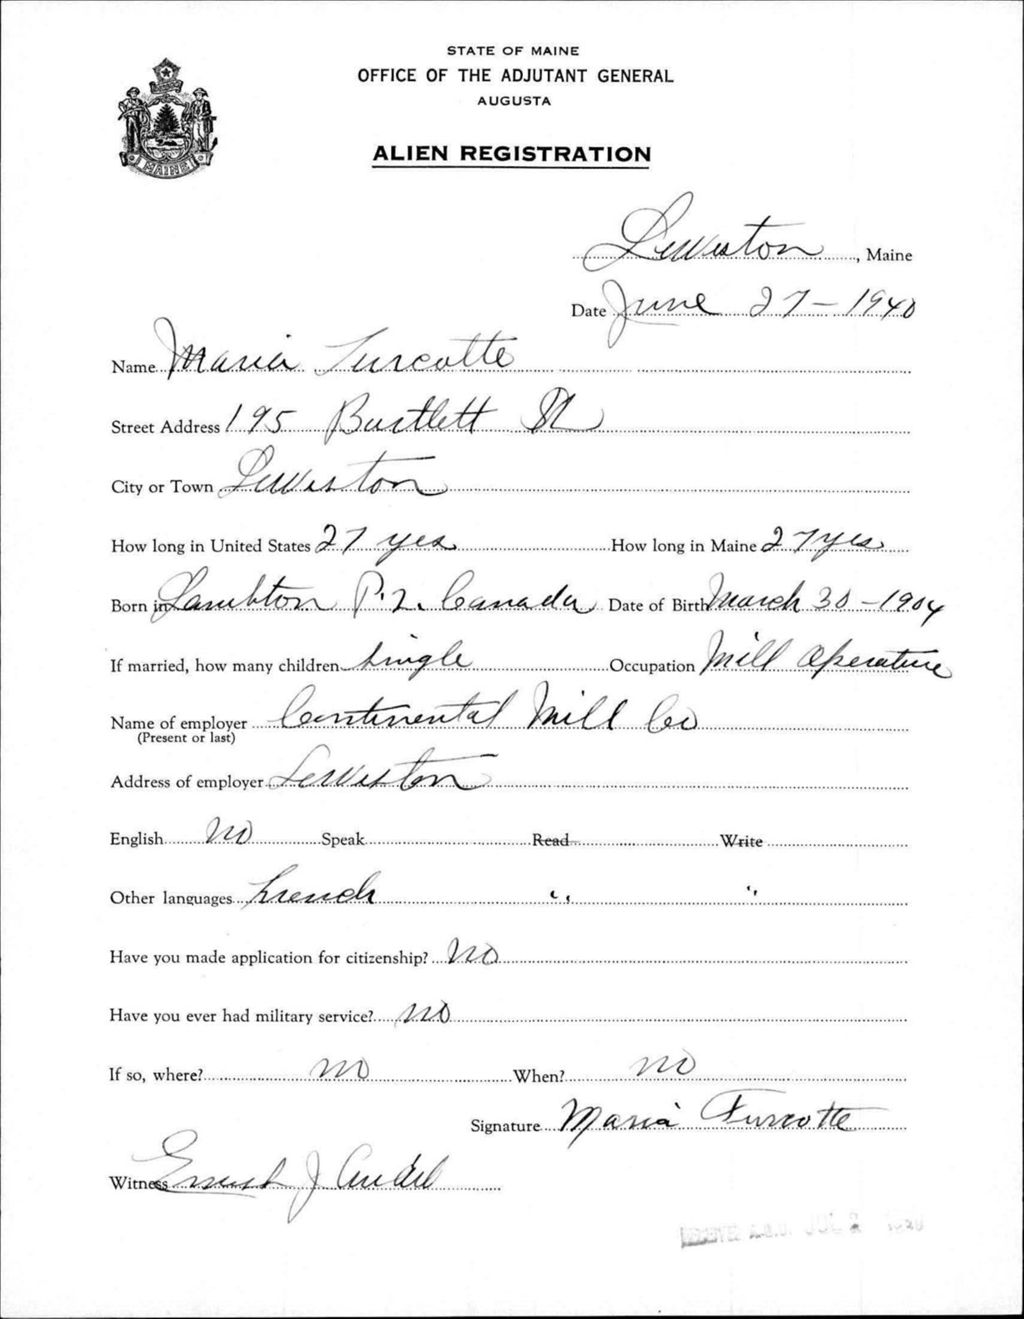 STATE OF MAINE
OFFICE OF THE ADJUTANT GENERAL
AUGUSTA
ALIEN REGISTRATION
MAINE
Lewiston, Maine
Date June 27-1940
Name Maria Turcotte
Street Address 195 Bartlett St
City or Town Lewiston
How long in United States 27 yes How long in Maine 27 yes
Born in Lambton P.Q. Canada Date of Birth March 30-1904
If married, how many children single Occupation Mill Operative
Name of employer Continental Mill Co
(Present or last)
Address of employer Lewiston
English No Speak Read Write
Other languages French " "
Have you made application for citizenship? No
Have you ever had military service? no
If so, where? no When? no
Signature Maria Turcotte
Witness Ernest J
RECEIVED A.G.O. JUL 2 1940